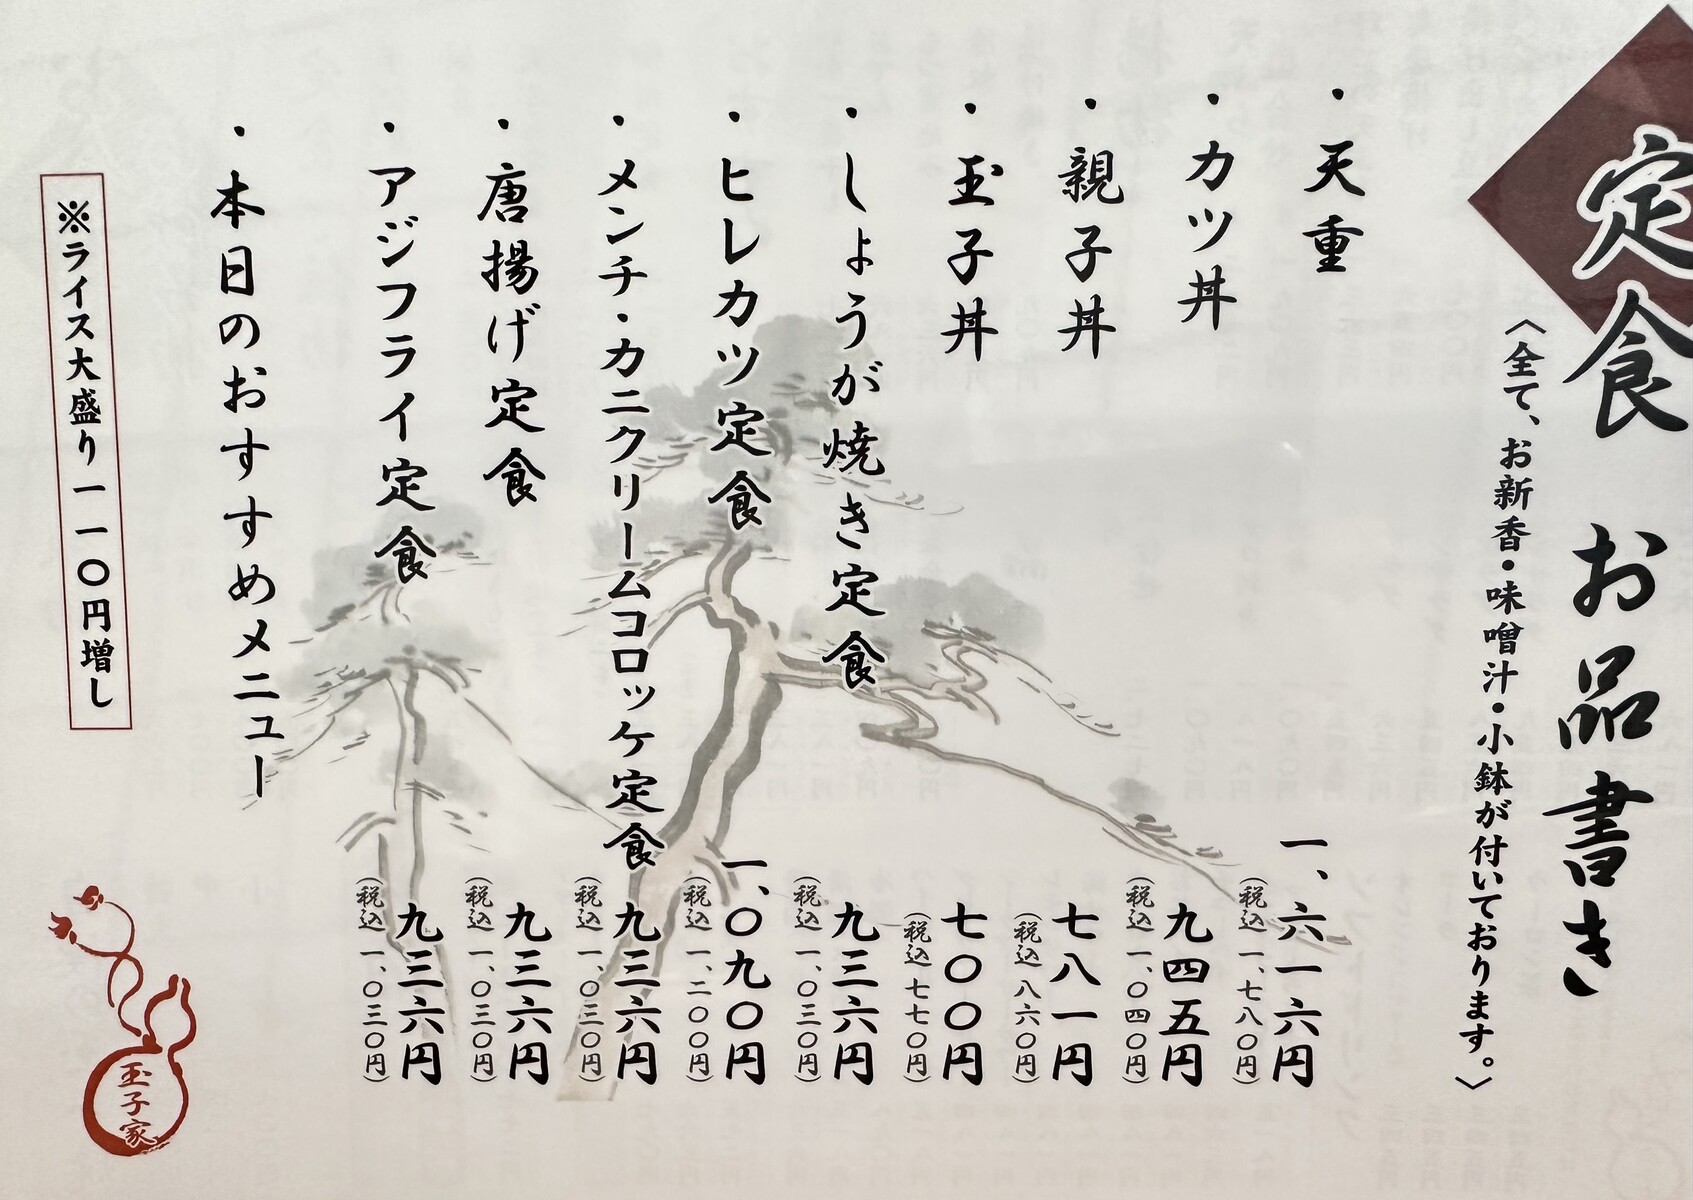 定食 お品書き
〈全て、お新香・味噌汁・小鉢が付いております。〉
・天重 一、六一六円
（税込 一、七八〇円）
・カツ丼 九四五円
（税込 一、〇四〇円）
・親子丼 七八一円
（税込 八六〇円）
・玉子丼 七〇〇円
（税込 七七〇円）
・しょうが焼き定食 九三六円
（税込 一、〇三〇円）
・ヒレカツ定食 一、〇九〇円
（税込 一、二〇〇円）
・メンチ・カニクリームコロッケ定食 九三六円
（税込 一、〇三〇円）
・唐揚げ定食 九三六円
（税込 一、〇三〇円）
・アジフライ定食 九三六円
（税込 一、〇三〇円）
・本日のおすすめメニュー
※ライス大盛り一一〇円増し
玉子家